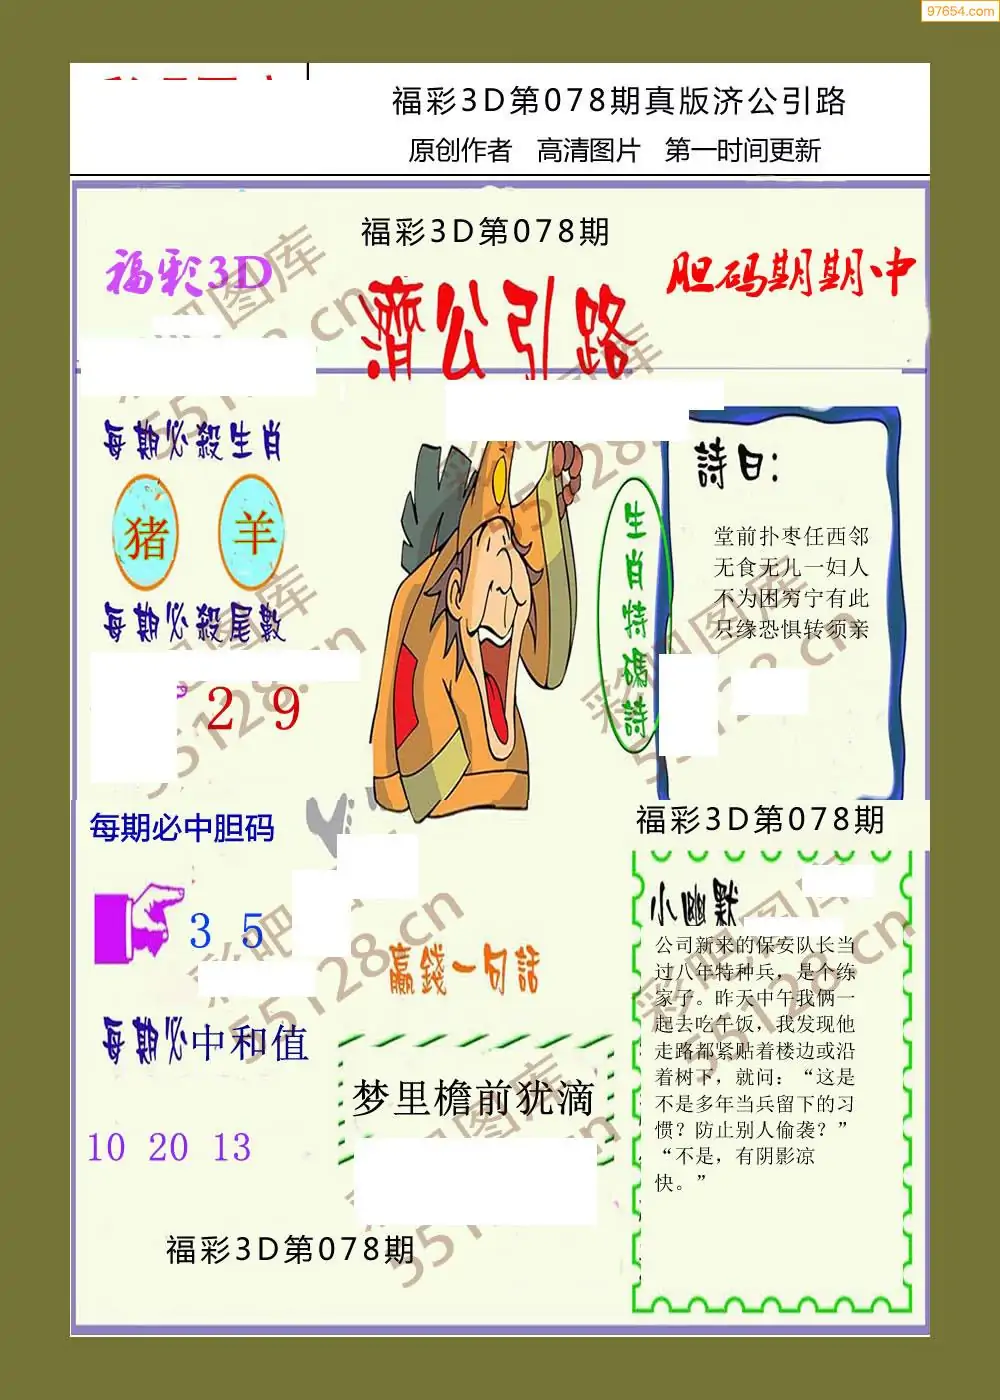 97654.com
福彩3D第078期真版济公引路
原创作者 高清图片 第一时间更新
福彩3D第078期
福彩3D
胆码期期中
濟公引路
每期必殺生肖
猪 羊
每期必殺尾數
2 9
生肖特碼詩
詩曰:
堂前扑枣任西邻
无食无儿一妇人
不为困穷宁有此
只缘恐惧转须亲
每期必中胆码
3 5
福彩3D第078期
小幽默
公司新来的保安队长当
过八年特种兵，是个练
家子。昨天中午我俩一
起去吃午饭，我发现他
走路都紧贴着楼边或沿
着树下，就问：“这是
不是多年当兵留下的习
惯？防止别人偷袭？”
“不是，有阴影凉
快。”
赢錢一句話
梦里檐前犹滴
每期必中和值
10 20 13
福彩3D第078期
彩吧图库
55128.cn